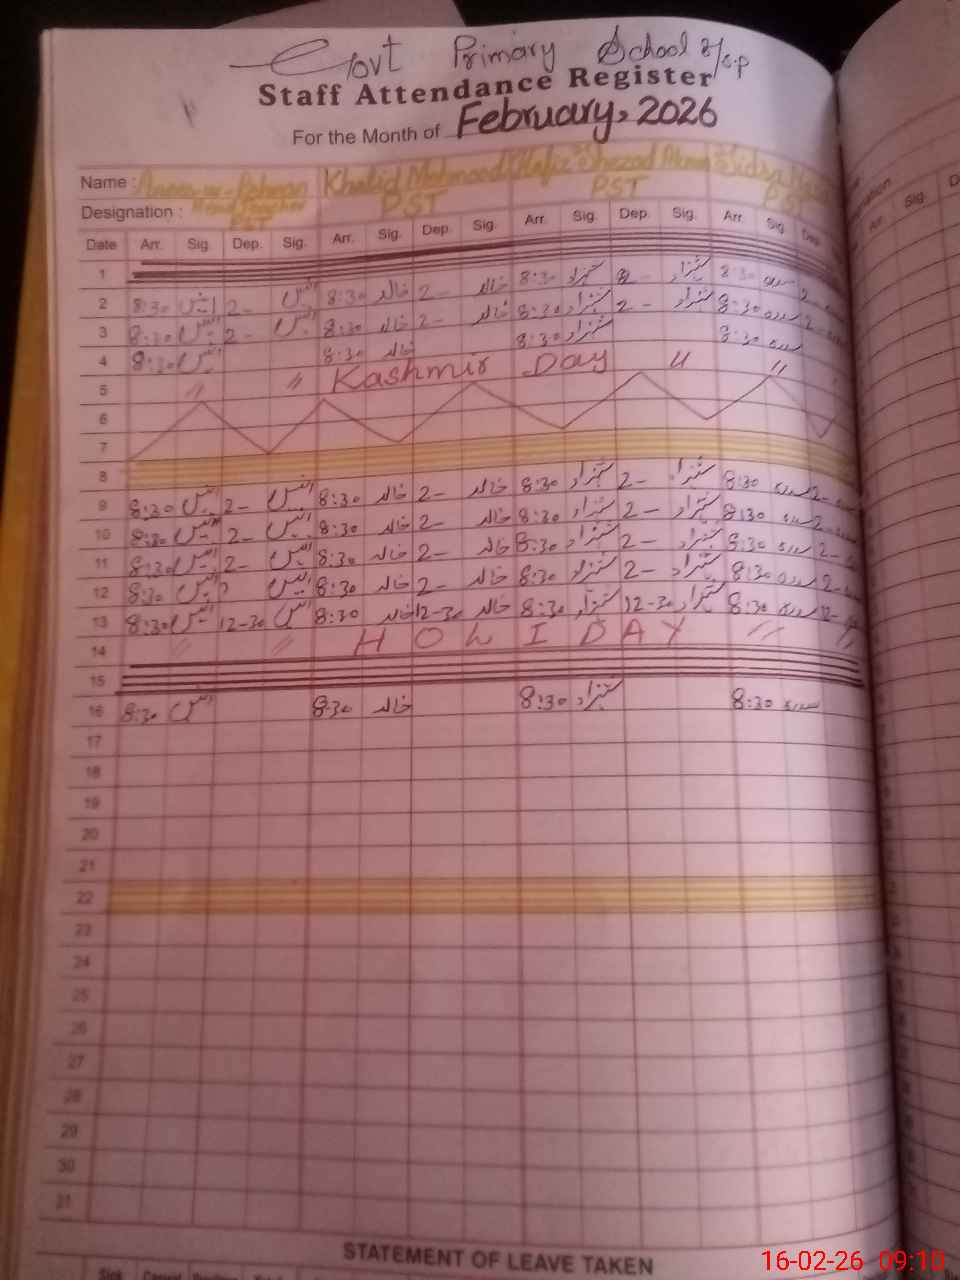 Govt Primary School
Staff Attendance Register
For the Month of February, 2026
Name : Khalid Mehmood Hafiz Shezad Sidra
Designation : Head Teacher PST PST
Date Arr. Sig. Dep. Sig. Arr. Sig. Dep. Sig. Arr. Sig. Dep. Sig. Arr Sig. Dep.
1
2 8:30 2- 8:30 خالد 2- خالد 8:30 شہزاد 2- شہزاد 8:30 سدرہ 2-
3 8:30 2- 8:30 خالد 2- خالد 8:30 شہزاد 2- شہزاد 8:30 سدرہ 2-
4 8:30 8:30 خالد 8:30 شہزاد 8:30 سدرہ
5 " " Kashmir Day " "
6
7
8
9 8:30 2- 8:30 خالد 2- خالد 8:30 شہزاد 2- شہزاد 8:30 سدرہ 2-
10 8:30 2- 8:30 خالد 2- خالد 8:30 شہزاد 2- شہزاد 8:30 سدرہ 2-
11 8:30 2- 8:30 خالد 2- خالد 8:30 شہزاد 2- شہزاد 8:30 سدرہ 2-
12 8:30 8:30 خالد 2- خالد 8:30 شہزاد 2- شہزاد 8:30 سدرہ 2-
13 8:30 12-30 8:30 خالد 12-30 خالد 8:30 شہزاد 12-30 شہزاد 8:30 سدرہ
14 " " HOLIDAY " "
15
16 8:30 8:30 خالد 8:30 شہزاد 8:30 سدرہ
17
18
19
20
21
22
23
24
25
26
27
28
29
30
31
STATEMENT OF LEAVE TAKEN
16-02-26 09:10